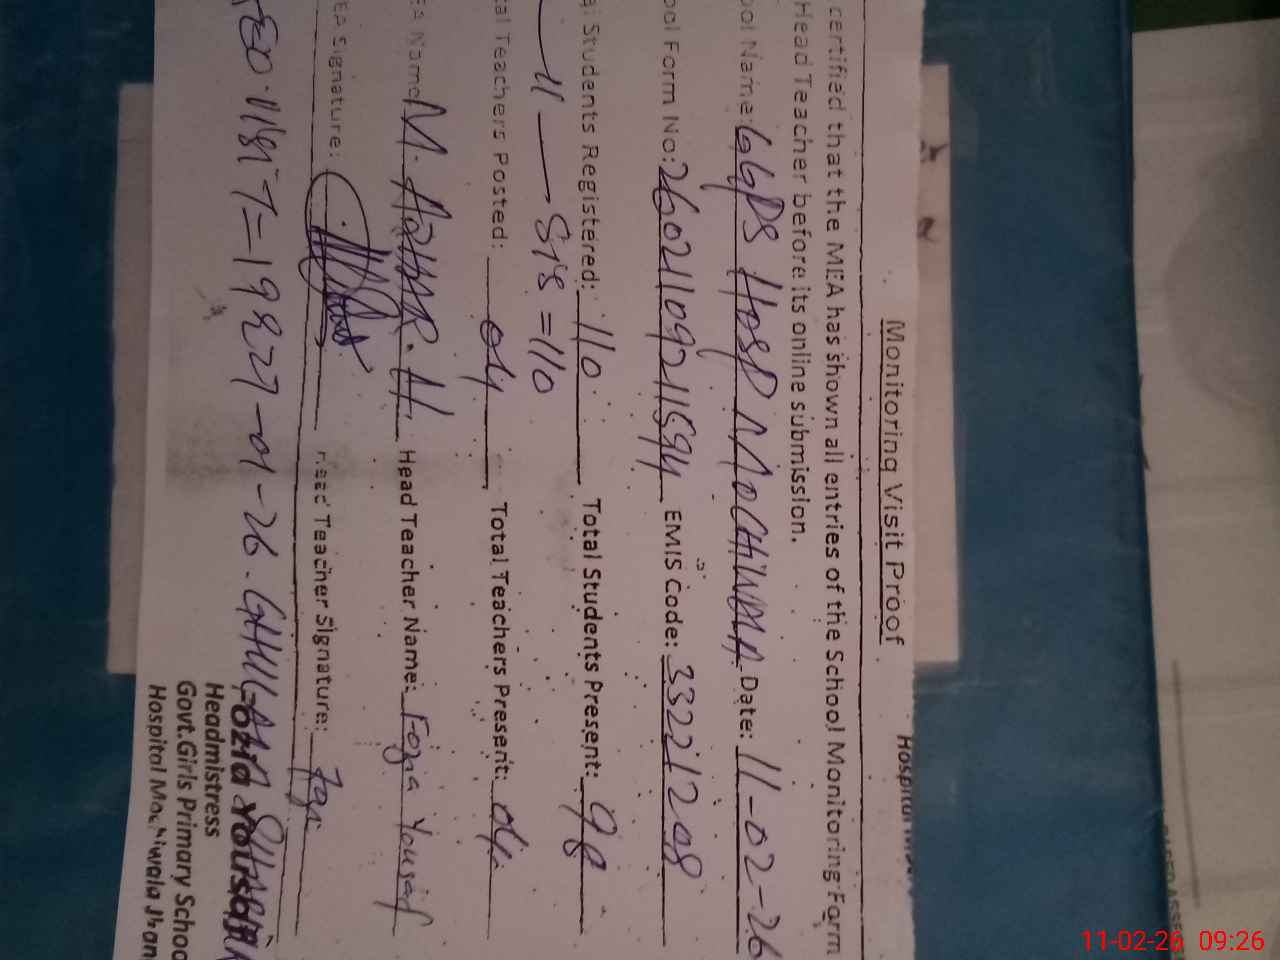 Monitoring Visit Proof
certified that the MEA has shown all entries of the School Monitoring Form
Head Teacher before its online submission.
ool Name: GGPS HOSP MOCHIWALA Date: 11-02-26
ool Form No: 26021109211594 EMIS Code: 33221208
al Students Registered: 110 Total Students Present: 98
11 SIS = 110
tal Teachers Posted: 04 Total Teachers Present: 04
EA Name M. H. Head Teacher Name: Fozia Yousaf
EA Signature: Head Teacher Signature:
27-01-26. GHULAM
Fozia Yousaf
Headmistress
Govt.Girls Primary Schoo
Hospital Mochiwala Jhan
11-02-26 09:26